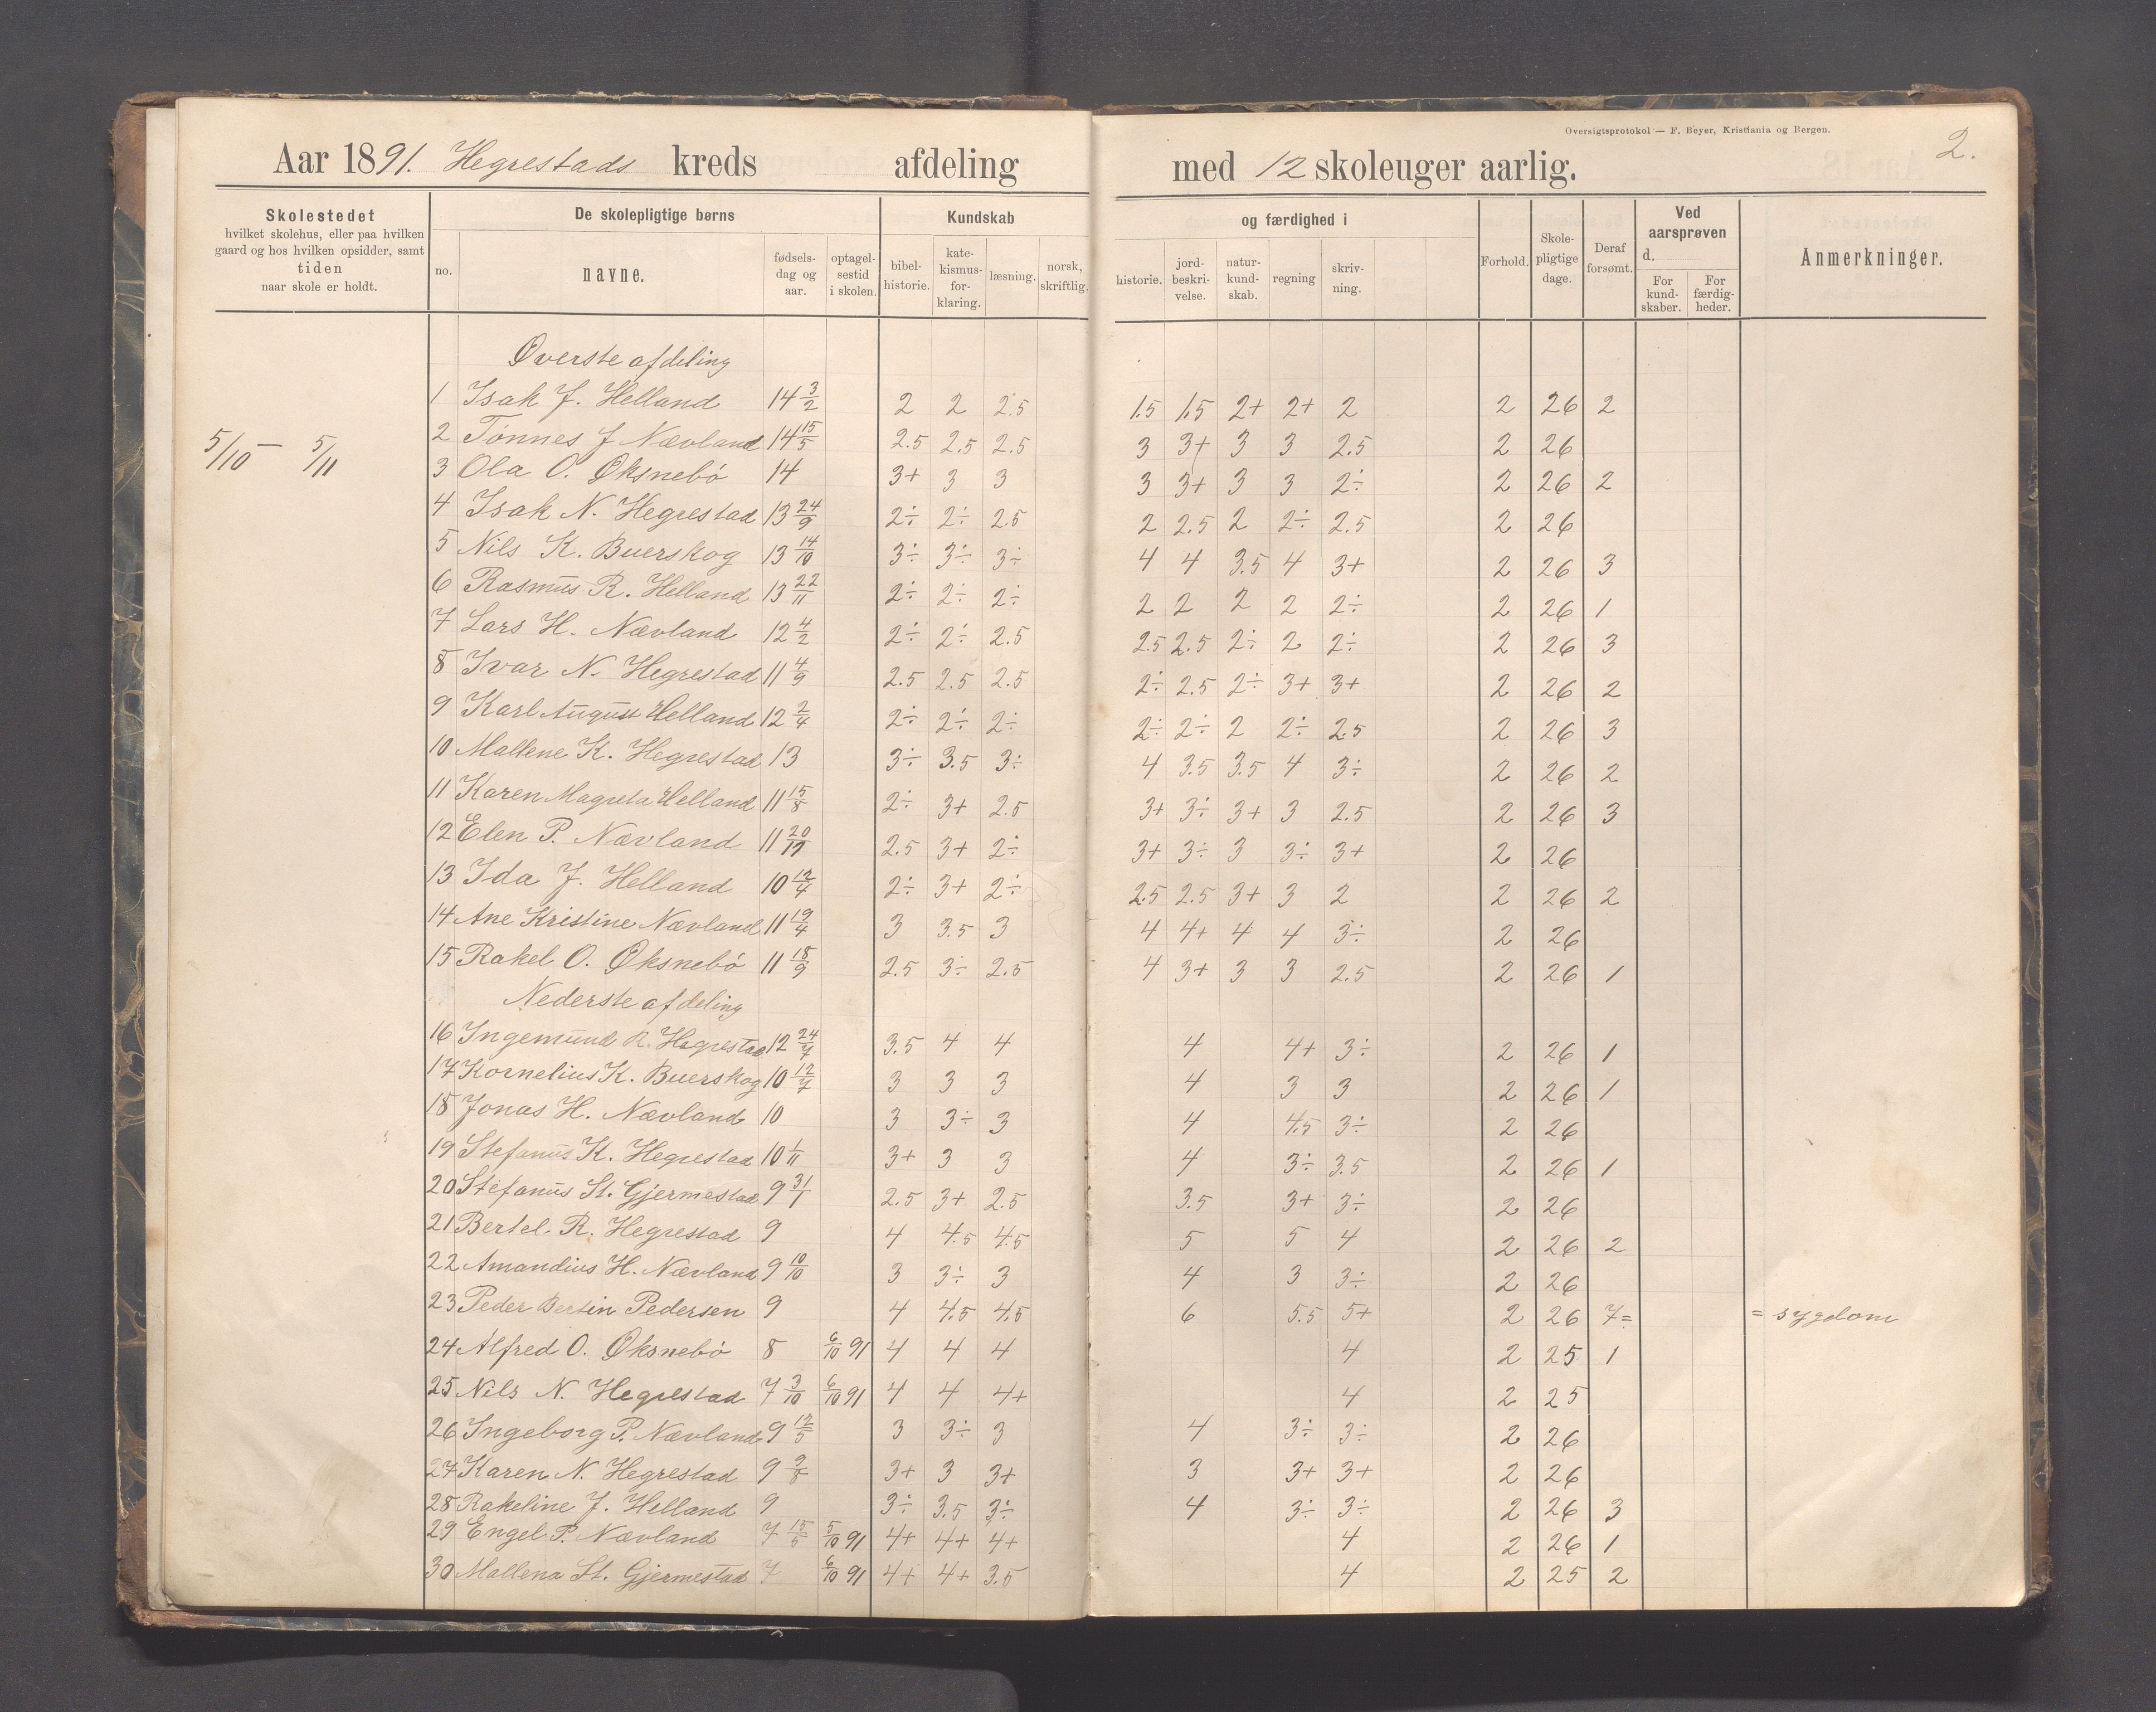 Oversigtsprotokol — F. Beyer, Kristiania og Bergen.
2.
Aar 1891. Hegrestads kreds afdeling med 12 skoleuger aarlig.
Skolestedet
hvilket skolehus, eller paa hvilken
gaard og hos hvilken opsidder, samt
tiden
naar skole er holdt.
De skolepligtige børns
no.
navne.
fødsels-
dag og
aar.
optagel-
sestid
i skolen.
Kundskab
bibel-
historie.
kate-
kismus-
for-
klaring.
læsning.
norsk,
skriftlig.
og færdighed i
historie.
jord-
beskri-
velse.
natur-
kund-
skab.
regning
skriv-
ning.
Forhold.
Skole-
pligtige
dage.
Deraf
forsømt.
Ved
aarsprøven
d.
For
kund-
skaber.
For
færdig-
heder.
Anmerkninger.
Øverste afdeling
5/10 — 5/11
1 Isak J. Helland 14 3/2 2 2 2.5 1.5 1.5 2+ 2+ 2 2 26 2
2 Tønnes J Nævland 14 15/5 2.5 2.5 2.5 3 3+ 3 3 2.5 2 26
3 Ola O. Øksnebø 14 3+ 3 3 3 3+ 3 3 2÷ 2 26 2
4 Isak N. Hegrestad 13 24/9 2÷ 2÷ 2.5 2 2.5 2 2÷ 2.5 2 26
5 Nils K. Buerskog 13 14/10 3÷ 3÷ 3÷ 4 4 3.5 4 3+ 2 26 3
6 Rasmus R. Helland 13 22/11 2÷ 2÷ 2÷ 2 2 2 2 2÷ 2 26 1
7 Lars H. Nævland 12 4/2 2÷ 2÷ 2.5 2.5 2.5 2÷ 2 2÷ 2 26 3
8 Ivar N. Hegrestad 11 4/9 2.5 2.5 2.5 2÷ 2.5 2÷ 3+ 3+ 2 26 2
9 Karl August Helland 12 2/4 2÷ 2÷ 2÷ 2÷ 2÷ 2 2÷ 2.5 2 26 3
10 Mallene K. Hegrestad 13 3÷ 3.5 3÷ 4 3.5 3.5 4 3÷ 2 26 2
11 Karen Magreta Helland 11 15/8 2÷ 3+ 2.5 3+ 3÷ 3+ 3 2.5 2 26 3
12 Elen P. Nævland 11 2.5 3+ 2÷ 3+ 3÷ 3 3÷ 3+ 2 26
13 Ida J. Helland 10 12/4 2÷ 3+ 2÷ 2.5 2.5 3+ 3 2 2 26 2
14 Ane Kristine Nævland 11 19/4 3 3.5 3 4 4+ 4 4 3÷ 2 26
15 Rakel O. Øksnebø 11 18/9 2.5 3÷ 2.5 4 3+ 3 3 2.5 2 26 1
Nederste afdeling
16 Ingemund R. Hegrestad 12 24/7 3.5 4 4 4 4+ 3÷ 2 26 1
17 Kornelius K. Buerskog 10 12/7 3 3 3 4 3 3 2 26 1
18 Jonas H. Nævland 10 3 3÷ 3 4 4.5 3÷ 2 26
19 Stefanus K. Hegrestad 10 1/11 3+ 3 3 4 3÷ 3.5 2 26 1
20 Stefanus St. Gjermestad 9 31/1 2.5 3+ 2.5 3.5 3+ 3÷ 2 26
21 Bertel R. Hegrestad 9 4 4.5 4.5 5 5 4 2 26 2
22 Amandius H. Nævland 9 10/10 3 3÷ 3 4 3 3÷ 2 26
23 Peder Bertin Pedersen 9 4 4.5 4.5 6 5.5 5+ 2 26 7= = sygdom
24 Alfred O. Øksnebø 8 6/10 91 4 4 4 4 2 25 1
25 Nils N. Hegrestad 7 3/10 6/10 91 4 4 4+ 4 2 25
26 Ingeborg P. Nævland 9 12/5 3 3÷ 3 4 3÷ 3÷ 2 26
27 Karen N. Hegrestad 9 9/8 3+ 3 3+ 3 3+ 3+ 2 26
28 Rakeline J. Helland 9 3÷ 3.5 3÷ 4 3÷ 3÷ 2 26 3
29 Engel P. Nævland 7 15/5 5/10 91 4+ 4+ 4+ 4 2 26 1
30 Mallena St. Gjermestad 7 6/10 91 4+ 4+ 3.5 4 2 25 2